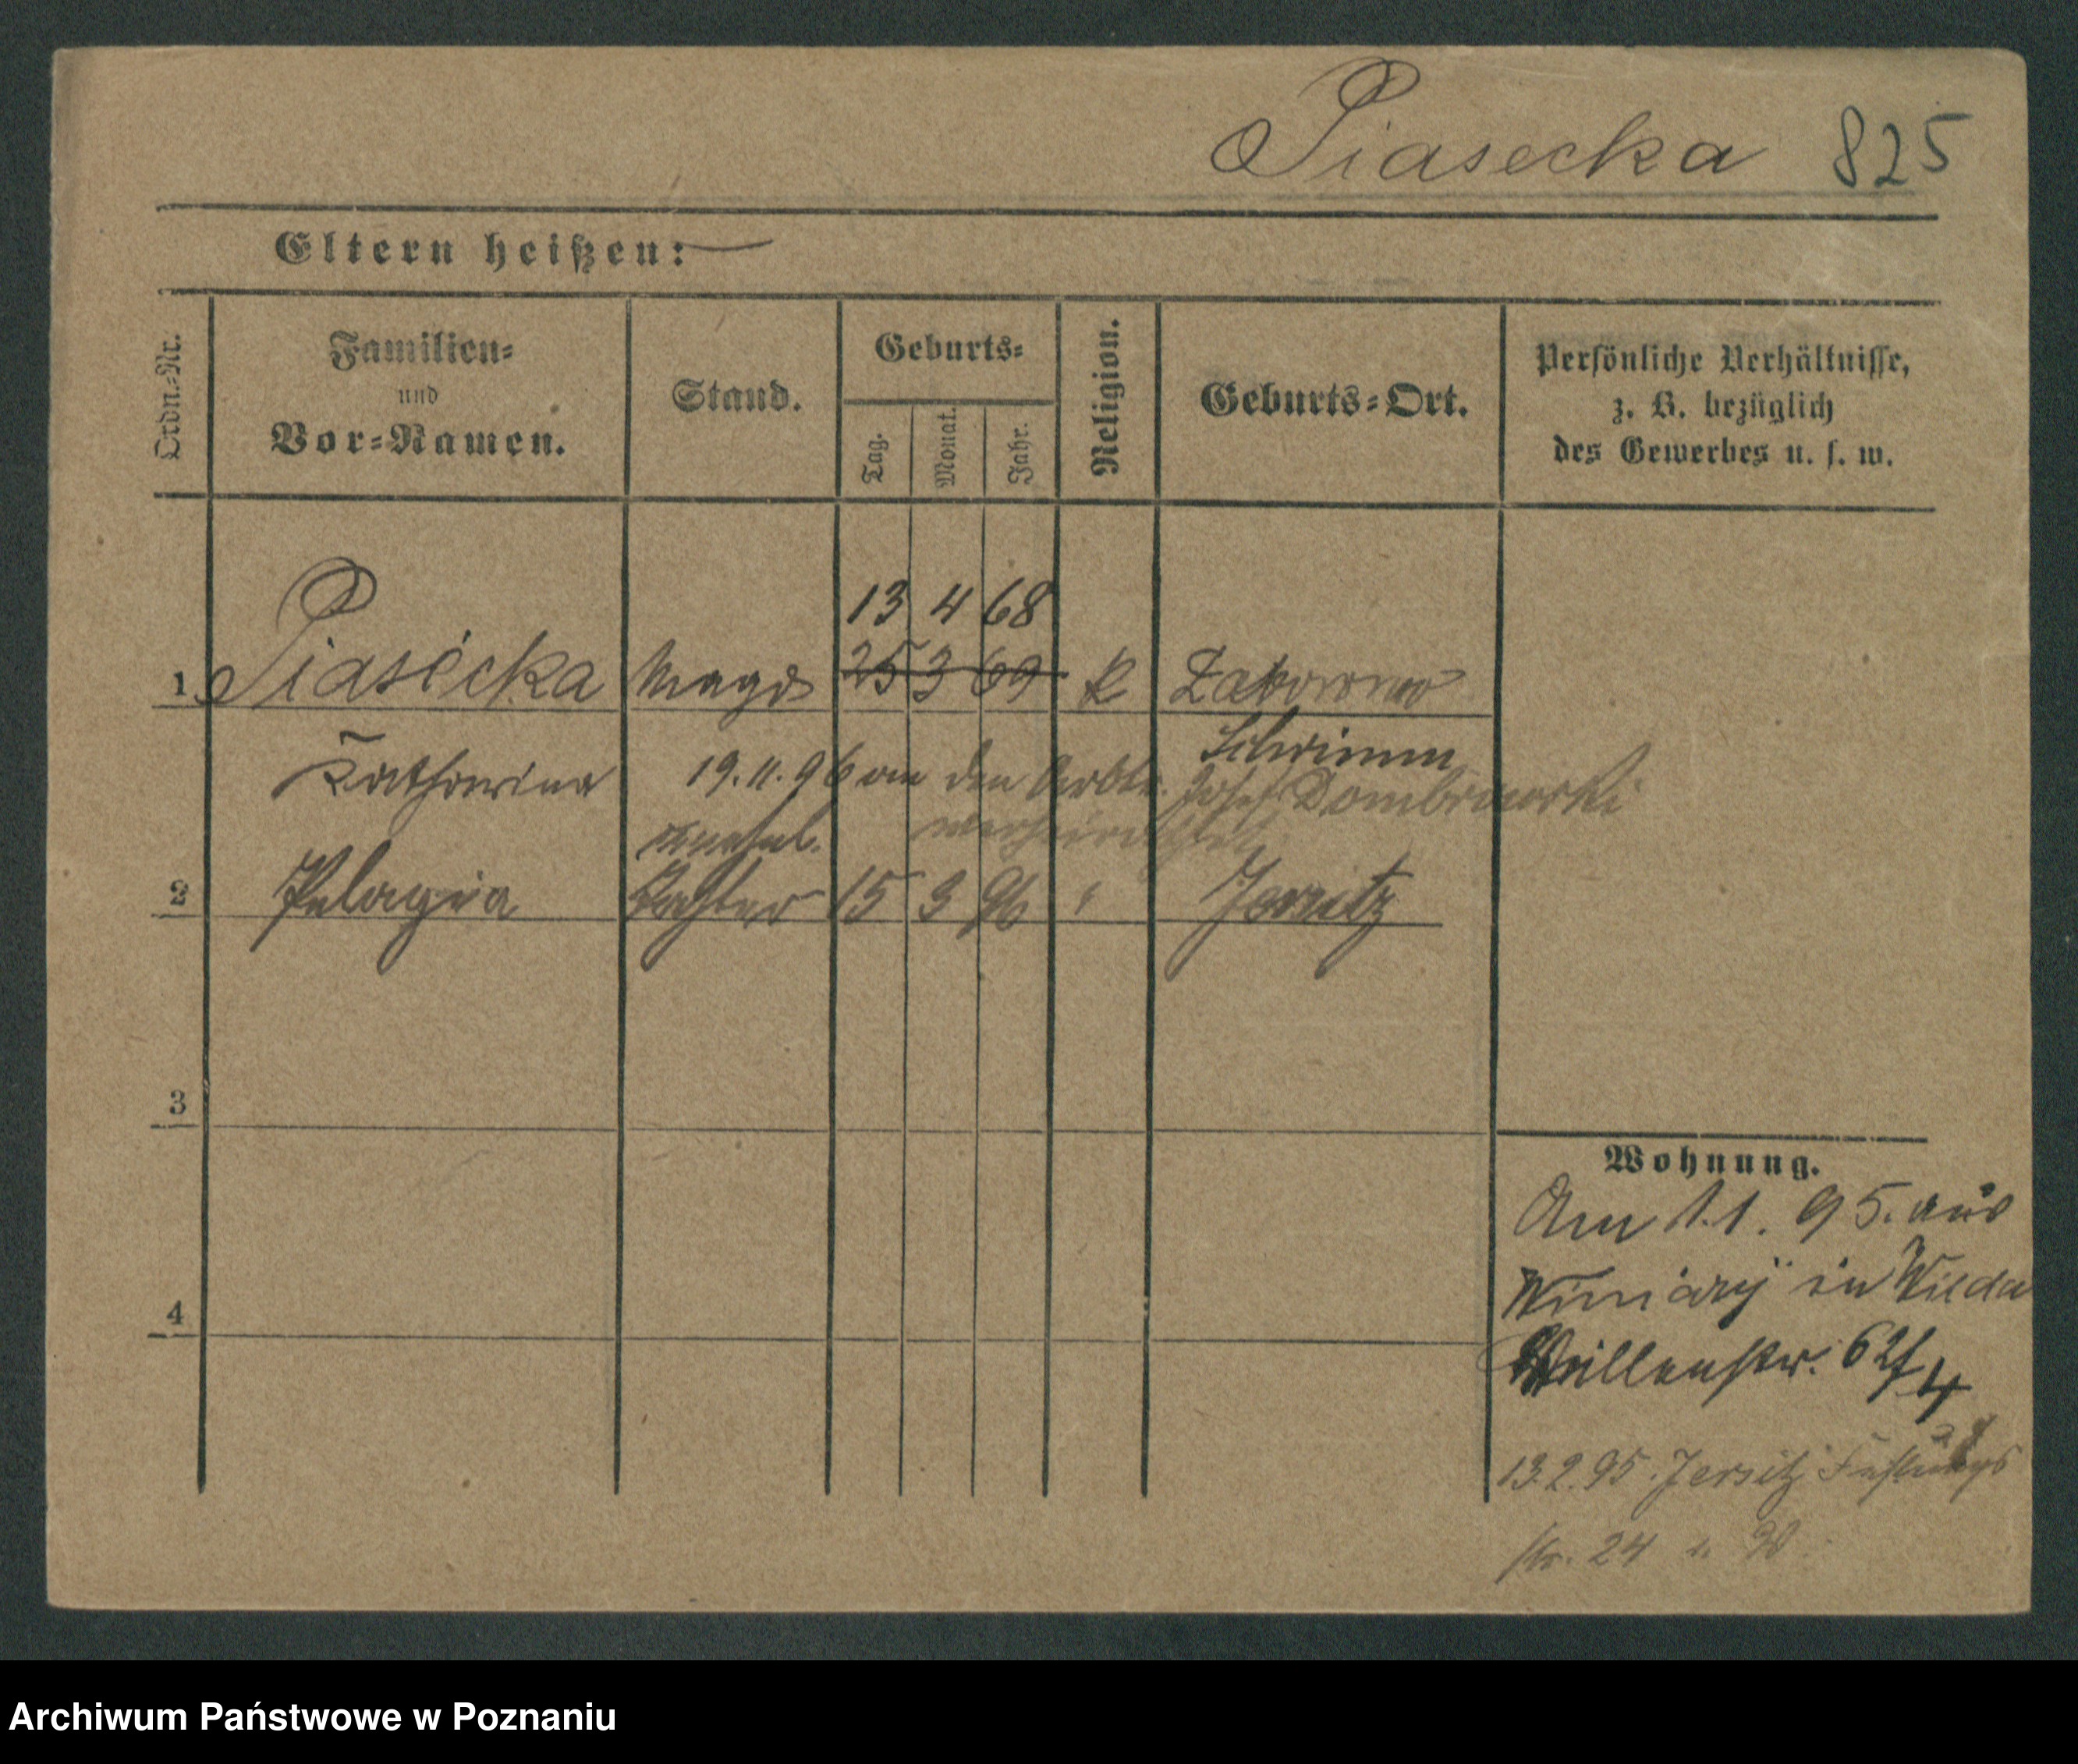 Piasecka 825
Eltern heißen: —
Ordn.-Nr.
Familien-
und
Vor-Namen.
Stand.
Geburts-
Tag.
Monat.
Jahr.
Religion.
Geburts-Ort.
Persönliche Verhältnisse,
z. B. bezüglich
des Gewerbes u. s. w.
13 4 68
1 Piasecka Magd 25 3 69 K
Schrimm
Katharina 19.11.96 an den Arbtr. Josef Dombrowski
verheirathet
unehel.
2 Pelagia Tochter 15 3 96 " Jersitz
3
4
Wohnung.
Am 1.1. 95. aus
Winiary in Wilda
str. 62/4
13.2.95. Jersitz Festungs
str. 24
Archiwum Państwowe w Poznaniu